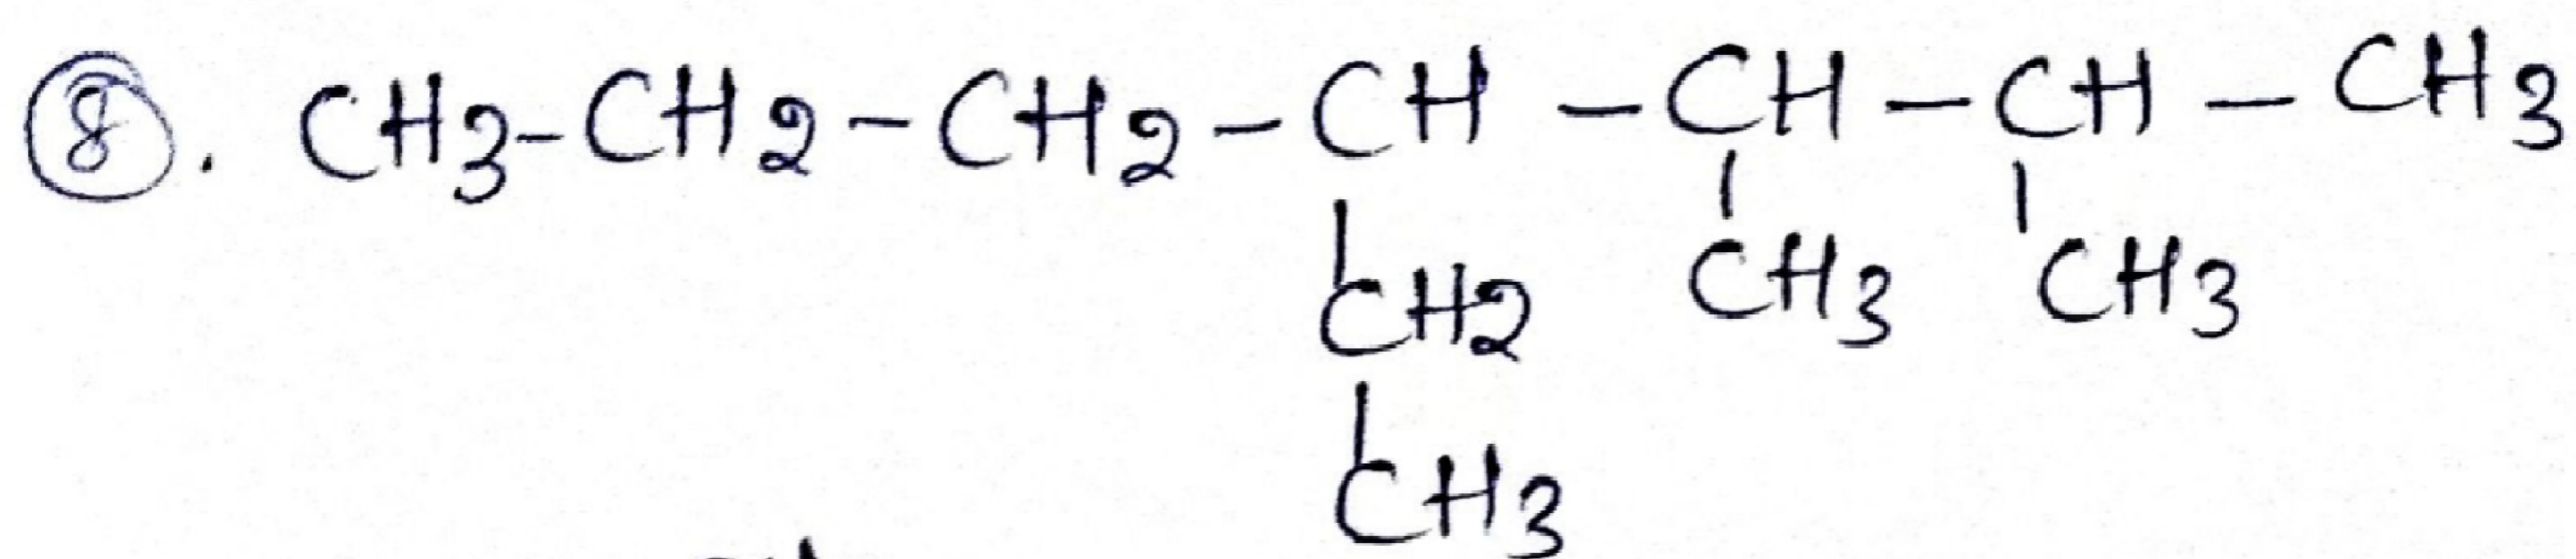 8. CH3-CH2-CH2-CH-CH-CH-CH3
| | |
CH2 CH3 CH3
|
CH3